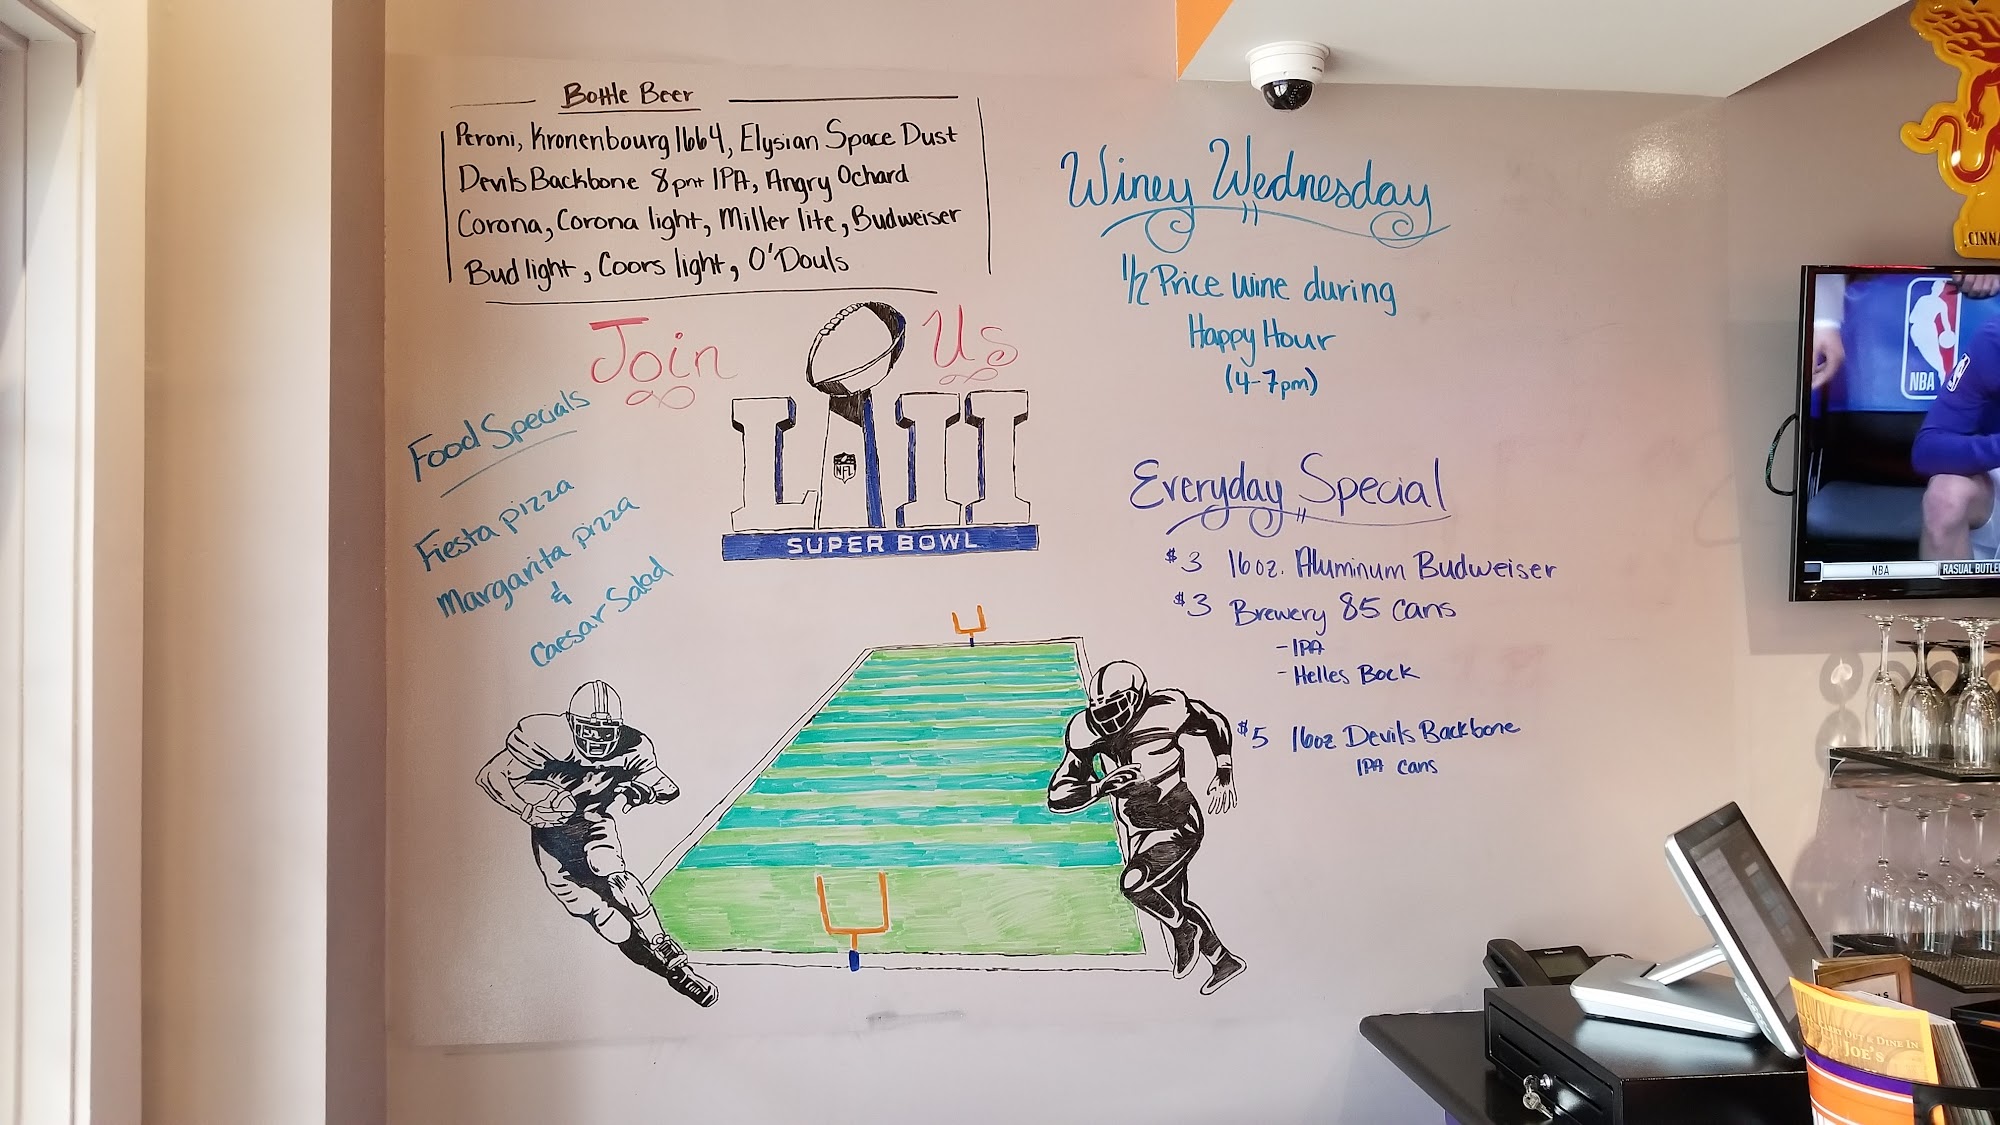 Bottle Beer
Peroni, Kronenbourg 1664, Elysian Space Dust
Devils Backbone 8pnt IPA, Angry Ochard
Corona, Corona light, Miller lite, Budweiser
Bud light, Coors light, O'Douls
Join Us
LII
NFL
SUPER BOWL
Food Specials
Fiesta pizza
Margarita pizza
&
Caesar Salad
Winey Wednesday
1/2 Price wine during
Happy Hour
(4-7pm)
Everyday Special
$3 16oz. Aluminum Budweiser
$3 Brewery 85 cans
-IPA
-Helles Bock
$5 16oz Devils Backbone
IPA cans
CINNA
NBA
NBA RASUAL BUTLE
& DINE IN
JOE'S